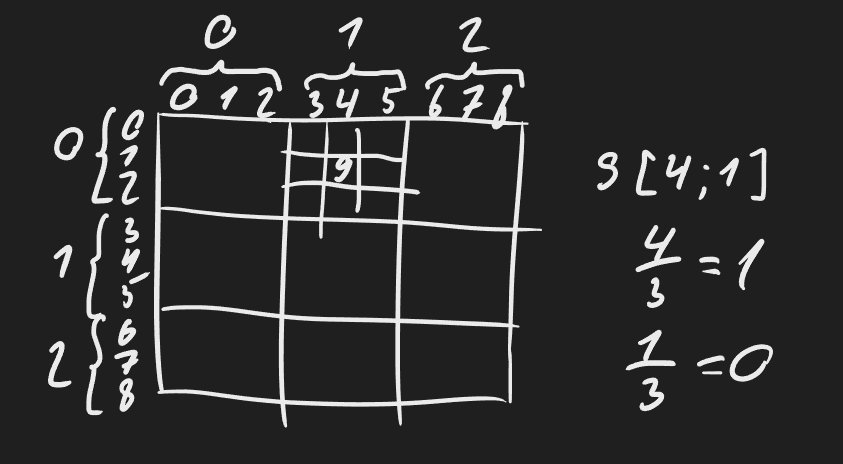 0 1 2
0 1 2 3 4 5 6 7 8
0
0
1
2
9
1
3
4
5
2
6
7
8
9 [4;1]
4/3 = 1
1/3 = 0